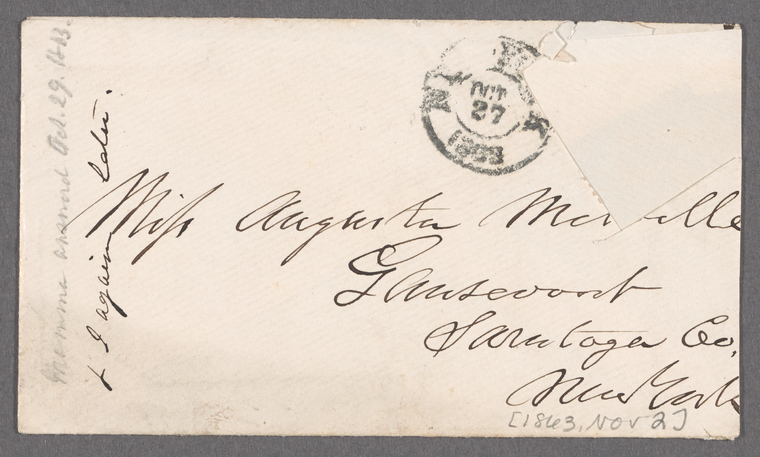 N. Y.
OCT
27
1863
Miss Augusta Melville
Gansevoort
Saratoga Co,
New York
[1863, Nov 2]
Mamma answered Oct. 29. 1863.
& I again later.